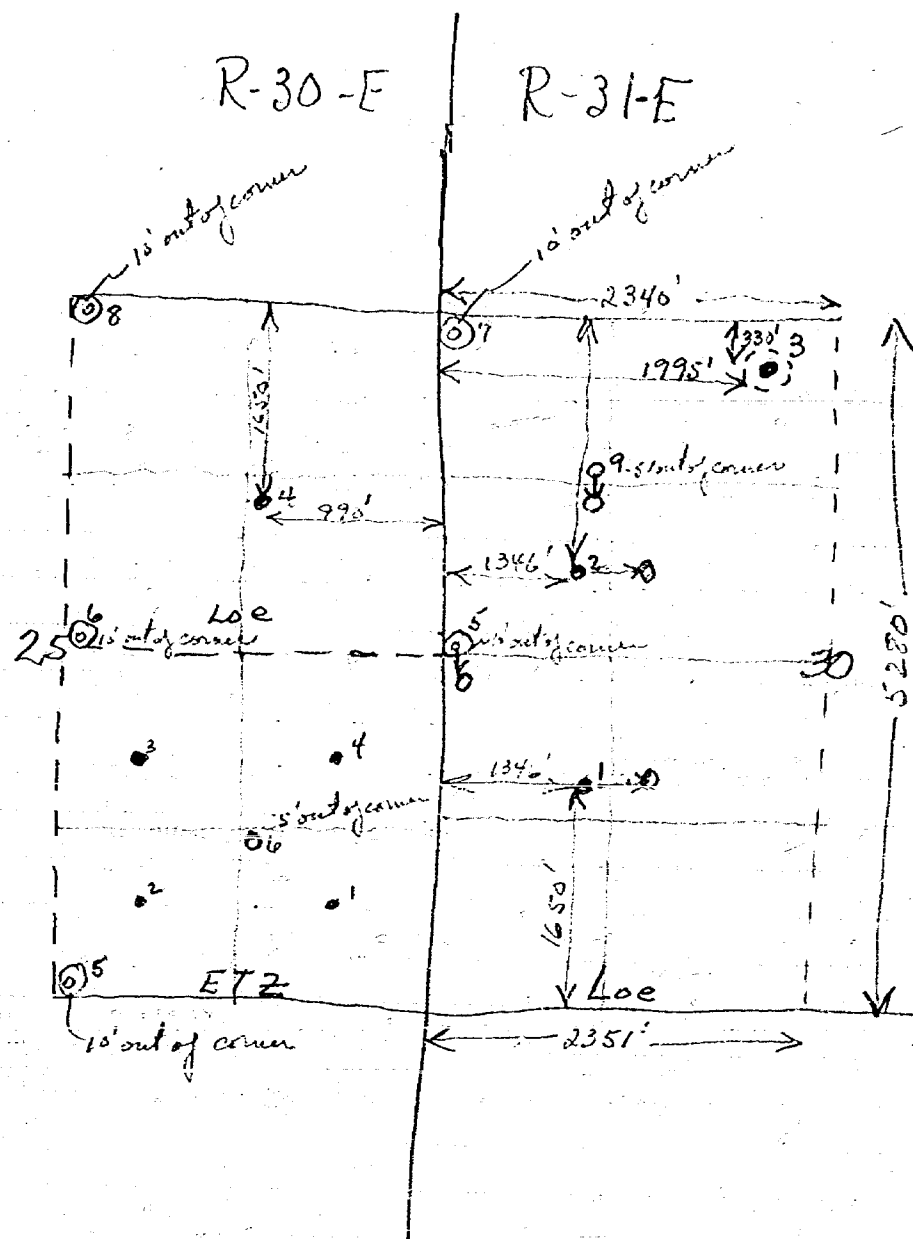 R-30-E R-31-E
10' out of corner 10' out of corner
2340'
8 7
330' 3
1995'
1650'
9 5' out of corner
4
990'
1346' 2
Loe
6 10' out of corner 5 out of corner
25 30
5280'
6
3 4
1346' 1
5' out of corner
6
2 1
1650'
5
ETZ Loe
10' out of corner
2351'